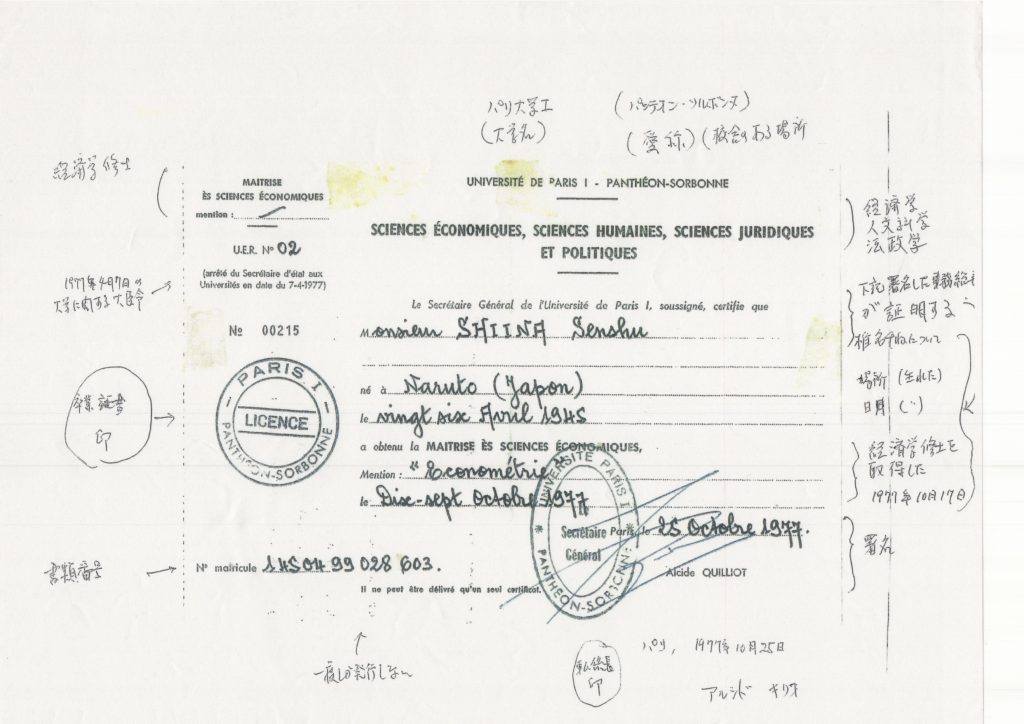 パリ大学I
(パンテオン・ソルボンヌ)
(大学名)
(愛称) (校舎のある場所
経済学修士
MAITRISE
ÈS SCIENCES ÉCONOMIQUES
mention :
U.E.R. Nº 02
(arrêté du Secrétaire d'état aux
Universités en date du 7-4-1977)
1977年4月7日の
大学に関する大臣令
UNIVERSITÉ DE PARIS I - PANTHÉON-SORBONNE
SCIENCES ÉCONOMIQUES, SCIENCES HUMAINES, SCIENCES JURIDIQUES
ET POLITIQUES
経済学
人文科学
法政学
Le Secrétaire Général de l'Université de Paris I, soussigné, certifie que
下記署名した事務総長
が証明する
Nº 00215
Monsieur SHIINA Senshu
椎名 について
né à Naruto (Japon)
場所 (生れた)
le vingt six Avril 1945
日月 (〃)
PARIS I
LICENCE
PANTHÉON-SORBONNE
卒業証書
印
a obtenu la MAITRISE ÈS SCIENCES ÉCONOMIQUES,
Mention : "Econométrie"
le Dix-sept Octobre 1977
経済学修士を
取得した
1977年10月17日
UNIVERSITÉ PARIS I
Secrétaire
Général
PANTHÉON-SORBONNE
Paris, le 25 Octobre 1977.
署名
Alcide QUILLIOT
書類番号
Nº matricule 14504 99 028 603.
Il ne peut être délivré qu'un seul certificat.
一度しか発行しない
総長
印
パリ, 1977年10月25日
アルシド キリオ